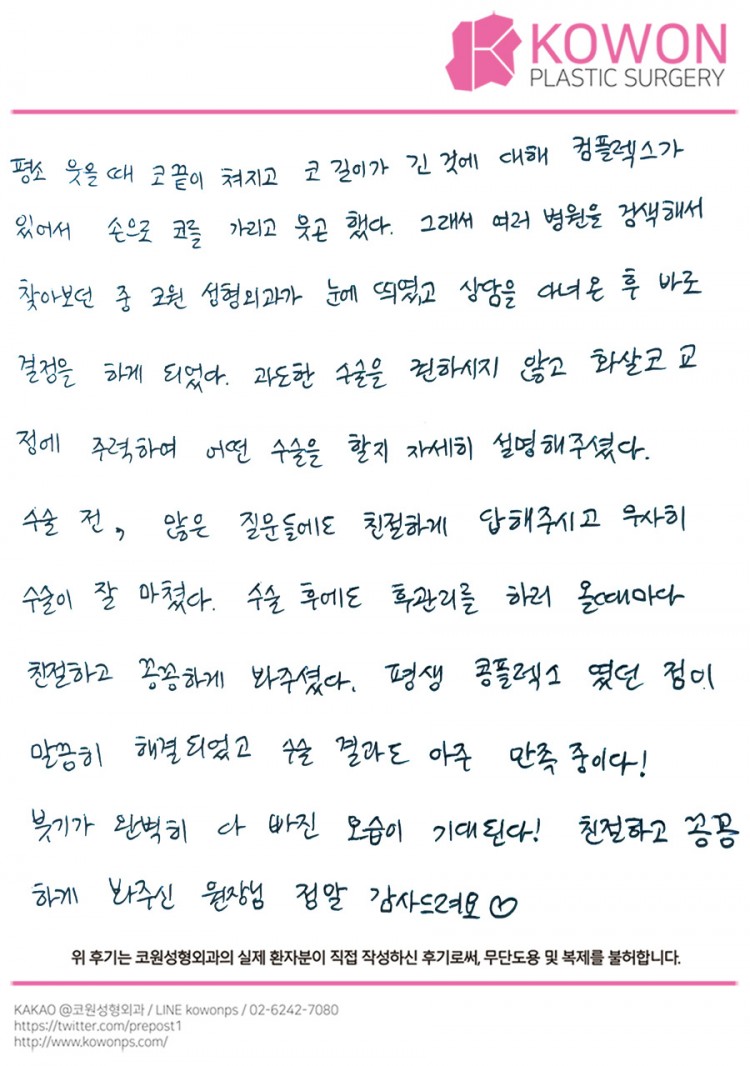 KOWON
PLASTIC SURGERY
평소 웃을때 코끝이 쳐지고 코 길이가 긴 것에 대해 컴플렉스가
있어서 손으로 코를 가리고 웃곤 했다. 그래서 여러 병원을 검색해서
찾아보던 중 코원 성형외과가 눈에 띄였고 상담을 다녀온 후 바로
결정을 하게 되었다. 과도한 수술을 권하시지 않고 화살코 교
정에 주력하여 어떤 수술을 할지 자세히 설명해주셨다.
수술 전, 많은 질문들에도 친절하게 답해주시고 무사히
수술이 잘 마쳤다. 수술 후에도 후관리를 하러 올때마다
친절하고 꽁꽁하게 봐주셨다. 평생 콩플렉스 였던 점이
말끔히 해결되었고 수술 결과도 아주 만족중이다!
붓기가 완벽히 다 빠진 모습이 기대된다! 친절하고 꽁꼼
하게 봐주신 원장님 정말 감사드려요♡
위 후기는 코원성형외과의 실제 환자분이 직접 작성하신 후기로써, 무단도용 및 복제를 불허합니다.
KAKAO @코원성형외과 / LINE kowonps / 02-6242-7080
https://twitter.com/prepost1
http://www.kowonps.com/